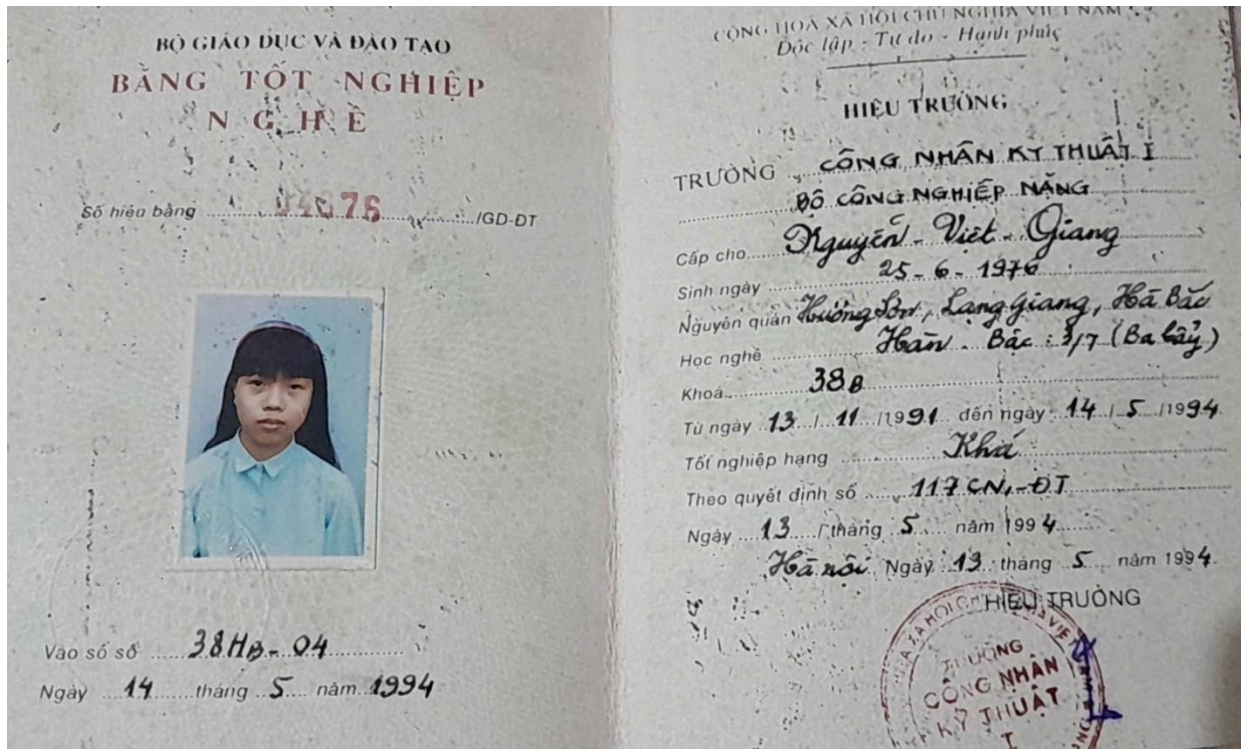 BỘ GIÁO DỤC VÀ ĐÀO TẠO
BẰNG TỐT NGHIỆP
NGHỀ
Số hiệu bằng 04076 /GD-ĐT
Vào sổ số 38HB-04
Ngày 14 tháng 5 năm 1994
CỘNG HOÀ XÃ HỘI CHỦ NGHĨA VIỆT NAM
Độc lập - Tự do - Hạnh phúc
HIỆU TRƯỞNG
TRƯỜNG CÔNG NHÂN KỸ THUẬT I
BỘ CÔNG NGHIỆP NẶNG
Cấp cho Nguyễn - Việt - Giang
Sinh ngày 25-6-1976
Nguyên quán Hương Sơn, Lạng Giang, Hà Bắc
Học nghề Hàn - Bậc : 3/7 (Ba bảy)
Khoá 38B
Từ ngày 13 / 11 /1991 đến ngày 14 / 5 /1994
Tốt nghiệp hạng Khá
Theo quyết định số 117 CN-ĐT
Ngày 13 / tháng 5 năm 1994
Hà nội Ngày 13 tháng 5 năm 1994
HIỆU TRƯỞNG
TRƯỜNG
CÔNG NHÂN
KỸ THUẬT
I